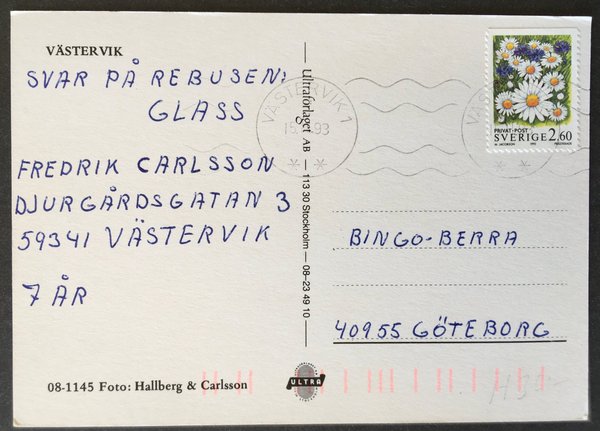 VÄSTERVIK
SVAR PÅ REBUSEN:
GLASS
FREDRIK CARLSSON
DJURGÅRDSGATAN 3
59341 VÄSTERVIK
7 ÅR
08-1145 Foto: Hallberg & Carlsson
Ultraförlaget AB — 113 30 Stockholm — 08-23 49 10
ULTRA
VÄSTERVIK 1
93
PRIVAT·POST
SVERIGE 2,60
BINGO-BERRA
40955 GÖTEBORG